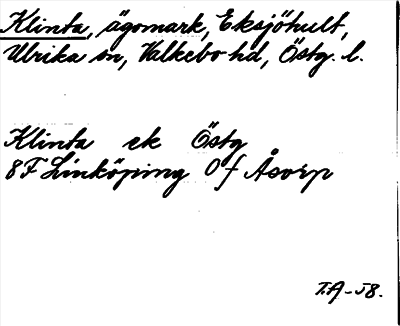 Klinta, ägomark, Eksjöhult,
Ulrika sn, Valkebo hd, Östg. l.
Klinta ek Östg
8F Linköping 0f Åsvep
T.A-58.